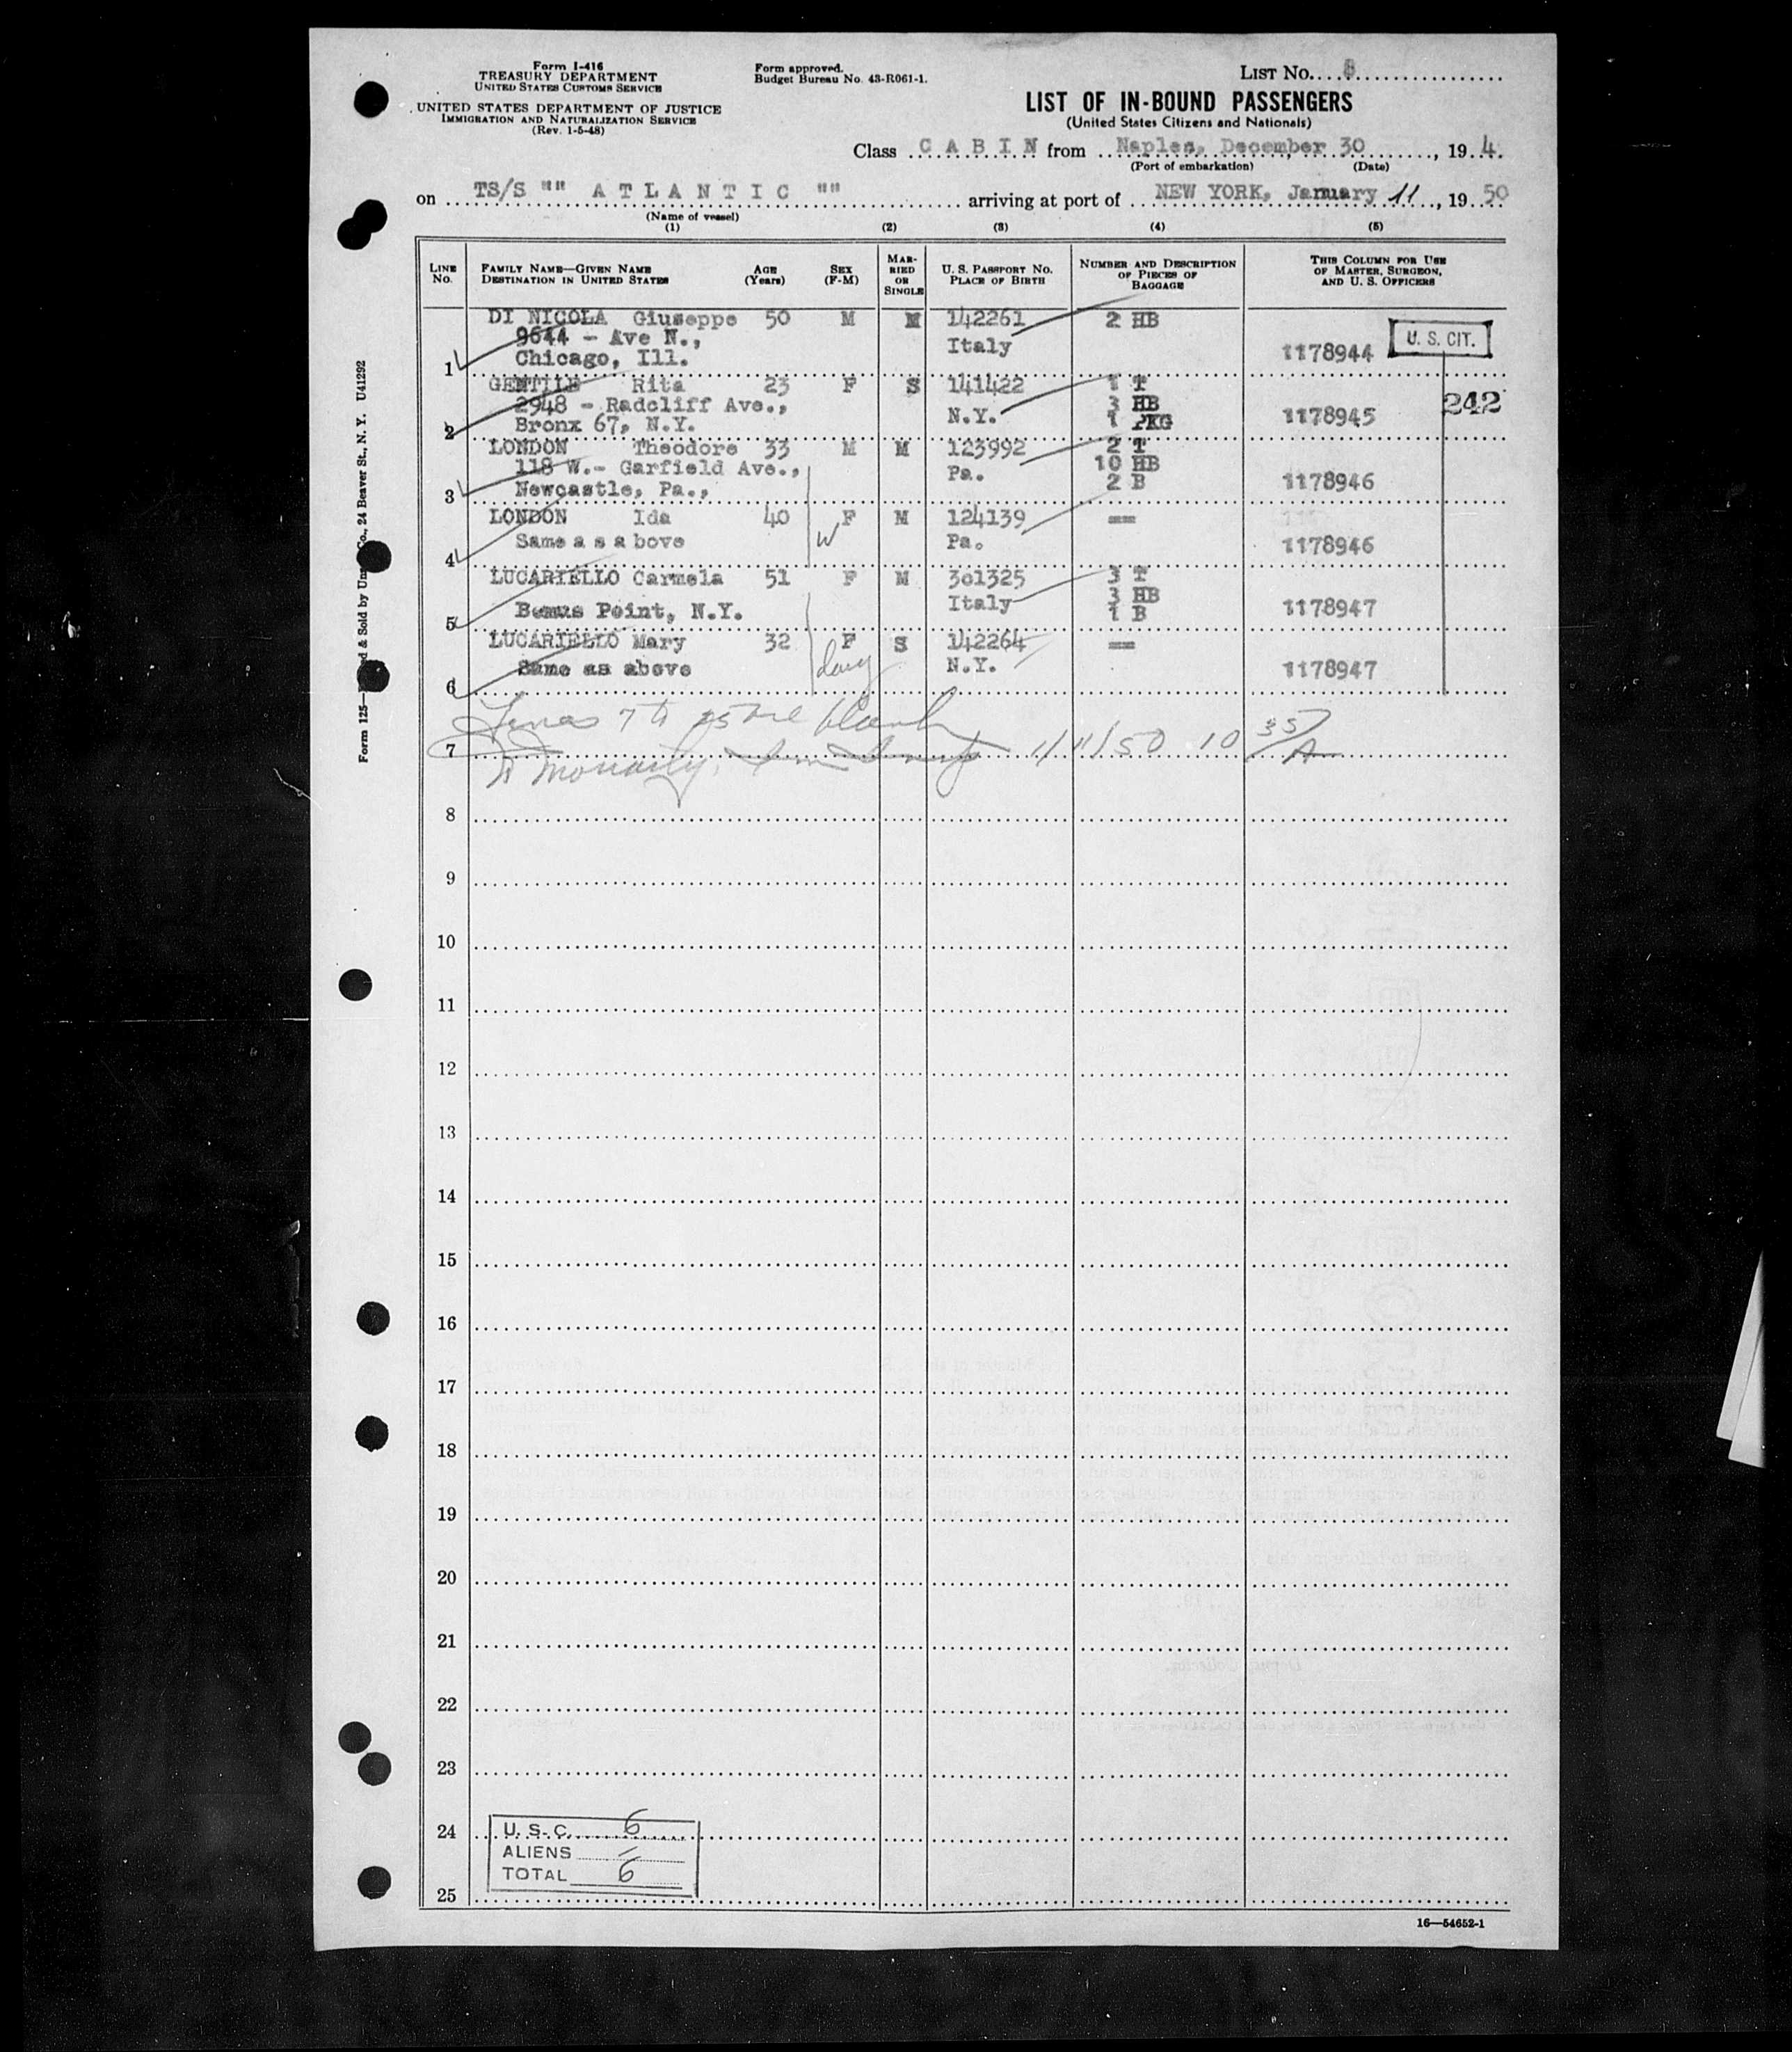 Form I-416
TREASURY DEPARTMENT
UNITED STATES CUSTOMS SERVICE
UNITED STATES DEPARTMENT OF JUSTICE
IMMIGRATION AND NATURALIZATION SERVICE
(Rev. 1-5-48)
Form approved.
Budget Bureau No. 43-R061-1.
LIST NO. 8
LIST OF IN-BOUND PASSENGERS
(United States Citizens and Nationals)
Class C A B I N from Naples, December 30, 19 4
(Port of embarkation) (Date)
on TS/S "" A T L A N T I C "" arriving at port of NEW YORK, January 11, 19 50
(Name of vessel)
(1) (2) (3) (4) (5)
LINE NO. FAMILY NAME—GIVEN NAME DESTINATION IN UNITED STATES AGE (Years) SEX (F-M) MARRIED OR SINGLE U. S. PASSPORT NO. PLACE OF BIRTH NUMBER AND DESCRIPTION OF PIECES OF BAGGAGE THIS COLUMN FOR USE OF MASTER, SURGEON, AND U. S. OFFICERS
DI NICOLA Giuseppe 50 M M 142261 2 HB
9644 - Ave N., Italy U. S. CIT.
1 Chicago, Ill. 1178944
GENTILE Rita 23 F S 141422 1 T
2948 - Radcliff Ave., N.Y. 3 HB 242
2 Bronx 67, N.Y. 1 PKG 1178945
LONDON Theodore 33 M M 123992 2 T
118 W.- Garfield Ave., Pa. 10 HB
3 Newcastle, Pa., 2 B 1178946
LONDON Ida 40 F M 124139 --
4 Same a s a bove W Pa. 1178946
LUCARIELLO Carmela 51 F M 301325 3 T
Italy 3 HB
5 Bemus Point, N.Y. 1 B 1178947
LUCARIELLO Mary 32 F S 142264 --
6 Same as above N.Y. 1178947
Lines 7 to 25 are blank
7 11/11/50 10 35/A
8
9
10
11
12
13
14
15
16
17
18
19
20
21
22
23
24 U. S. C. 6
ALIENS –
TOTAL 6
25
16—54652-1
24 Beaver St., N. Y. U41292